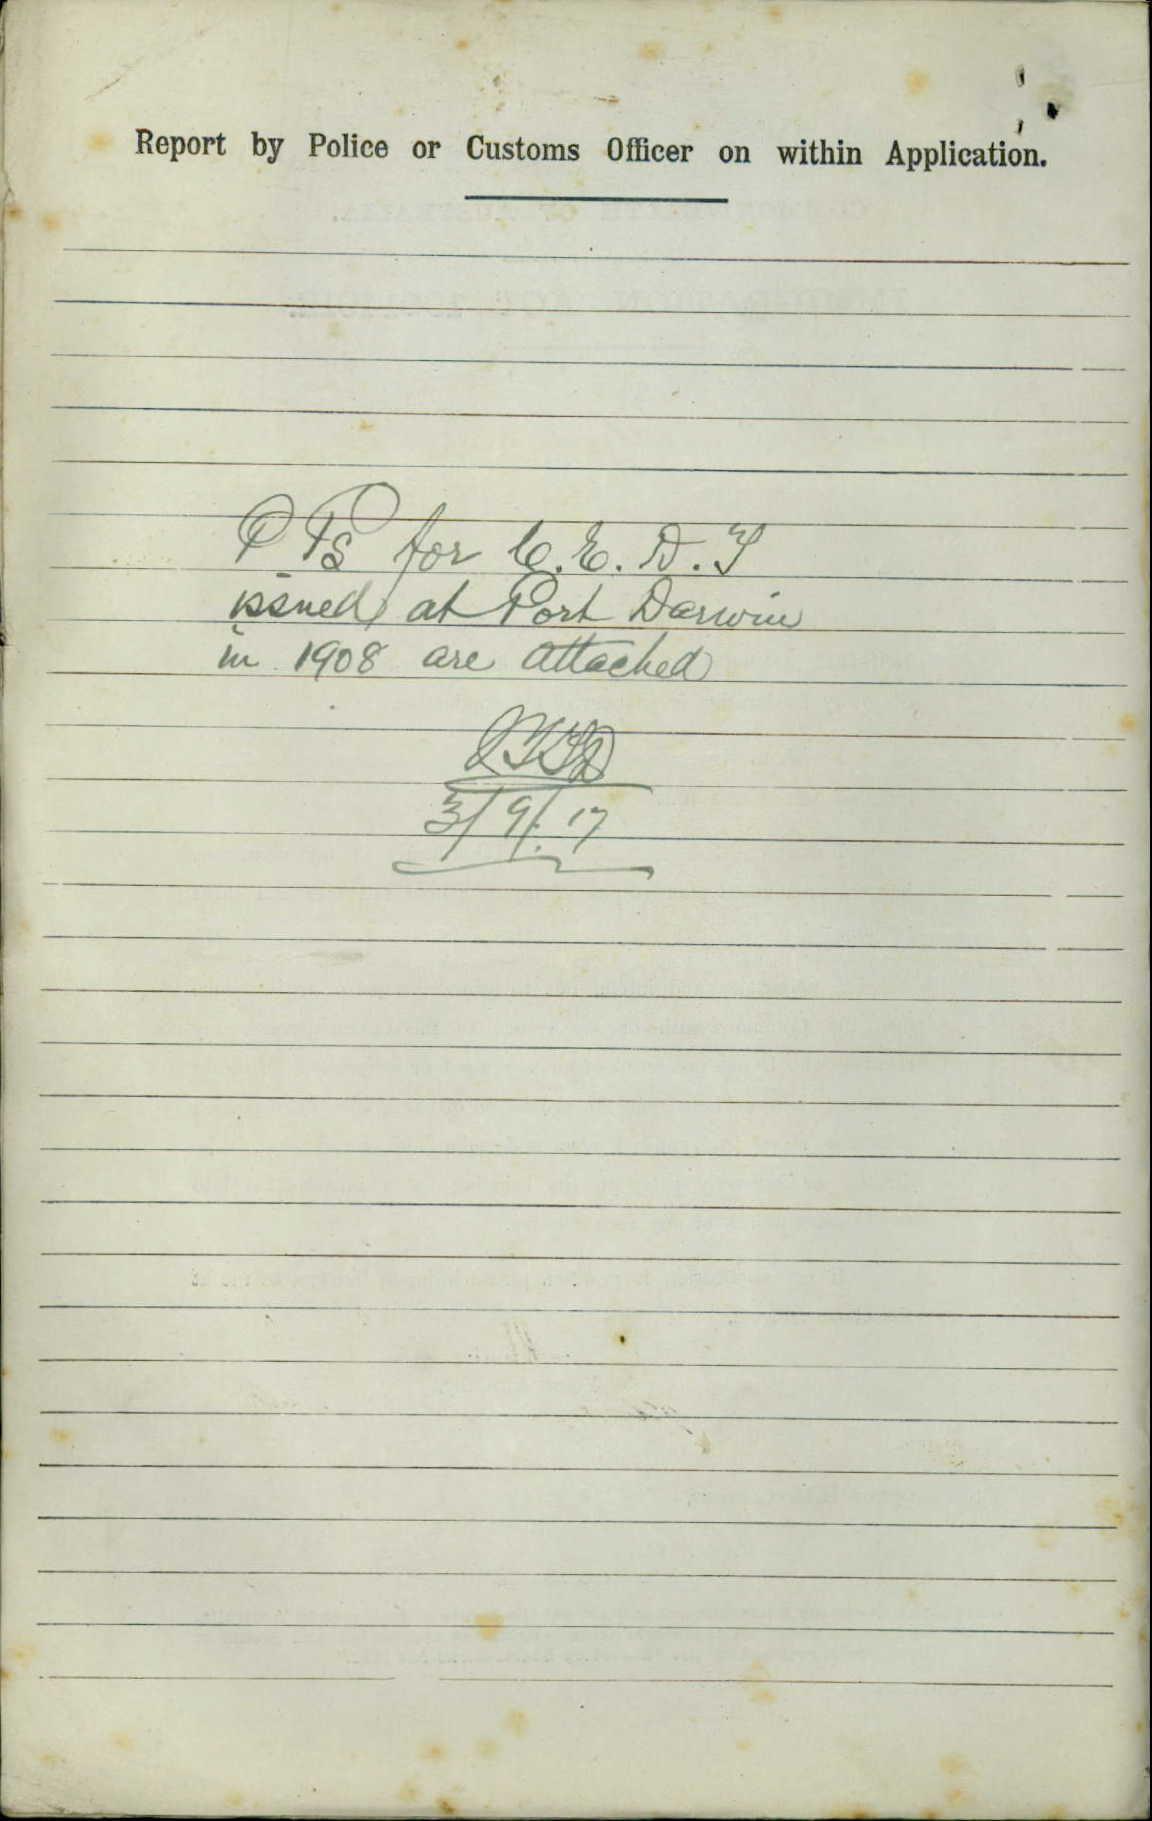 Report by Police or Customs Officer on within Application.
P Ps for C.E.D.T
issued at Port Darwin
in 1908 are attached
3/9/.17